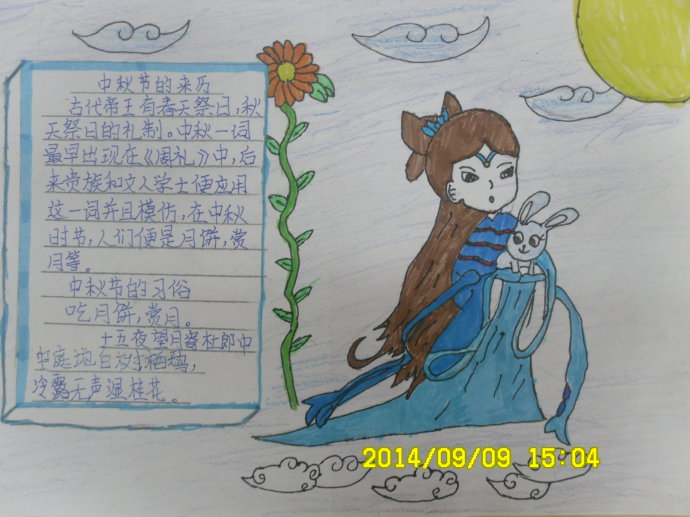 中秋节的来历
古代帝王有春天祭日,秋
天祭日的礼制。中秋一词
最早出现在《周礼》中,后
来贵族和文人学士便应用
这一词并且模仿,在中秋
时节,人们便是月饼,赏
月等。
中秋节的习俗
吃月饼,赏月。
十五夜望月寄杜郎中
中庭地白树栖鸦,
冷露无声湿桂花。
2014/09/09 15:04